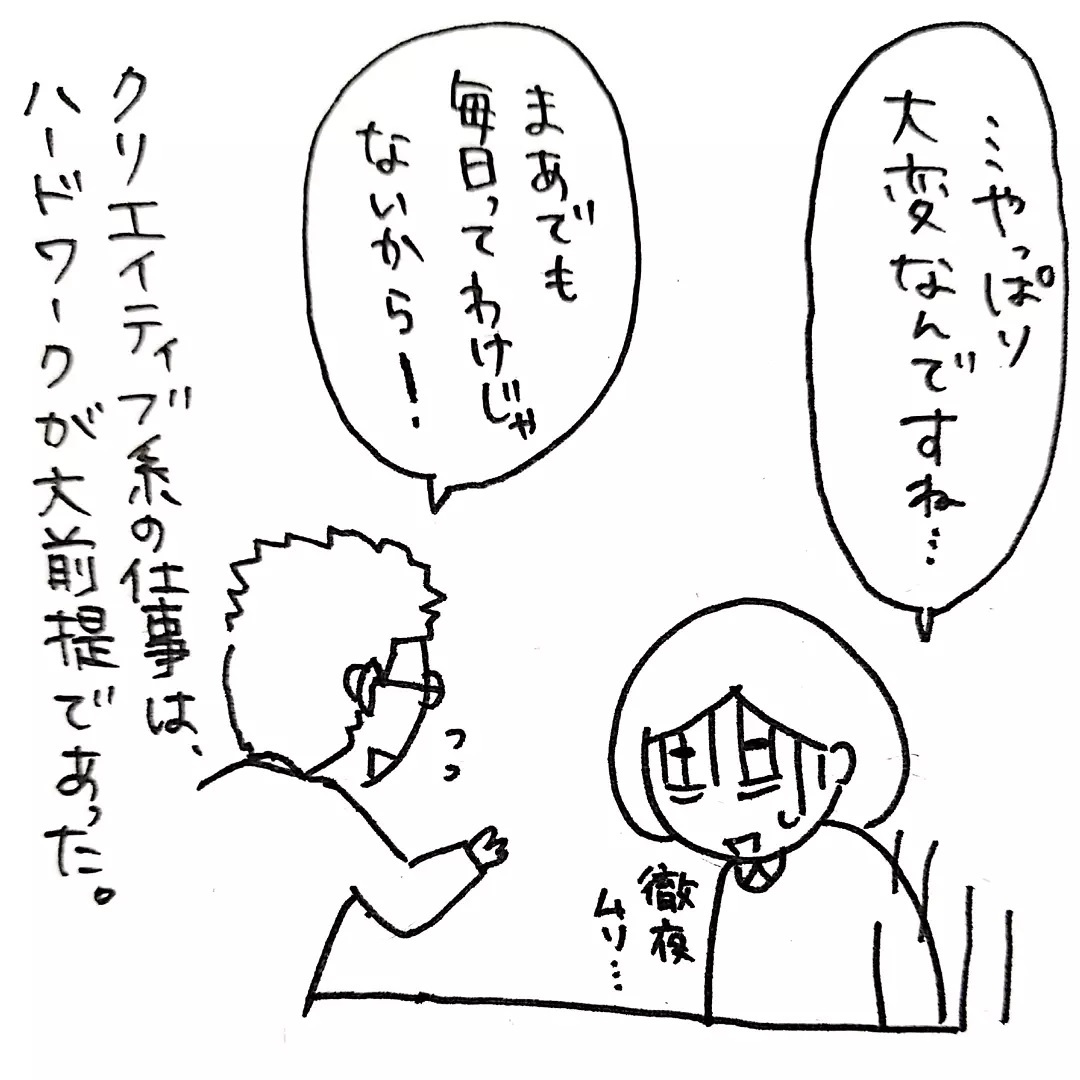 …やっぱり
大変なんですね…
まあでも
毎日ってわけじゃ
ないから！
徹夜
ムリ…
クリエイティブ系の仕事は、
ハードワークが大前提であった。